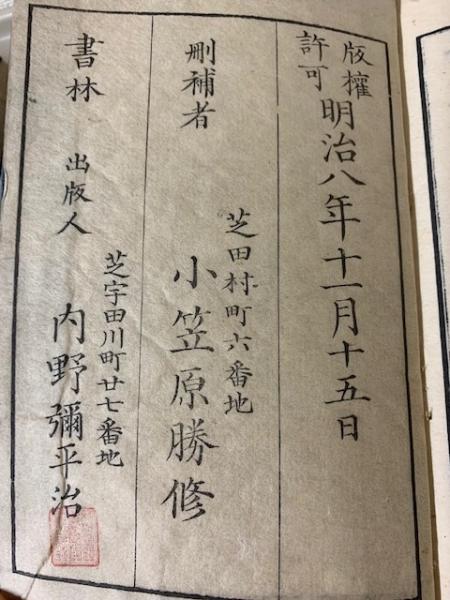 版權
許可
明治八年十一月十五日
刪補者
芝田村町六番地
小笠原勝修
書林
出版人
芝宇田川町廿七番地
内野彌平治